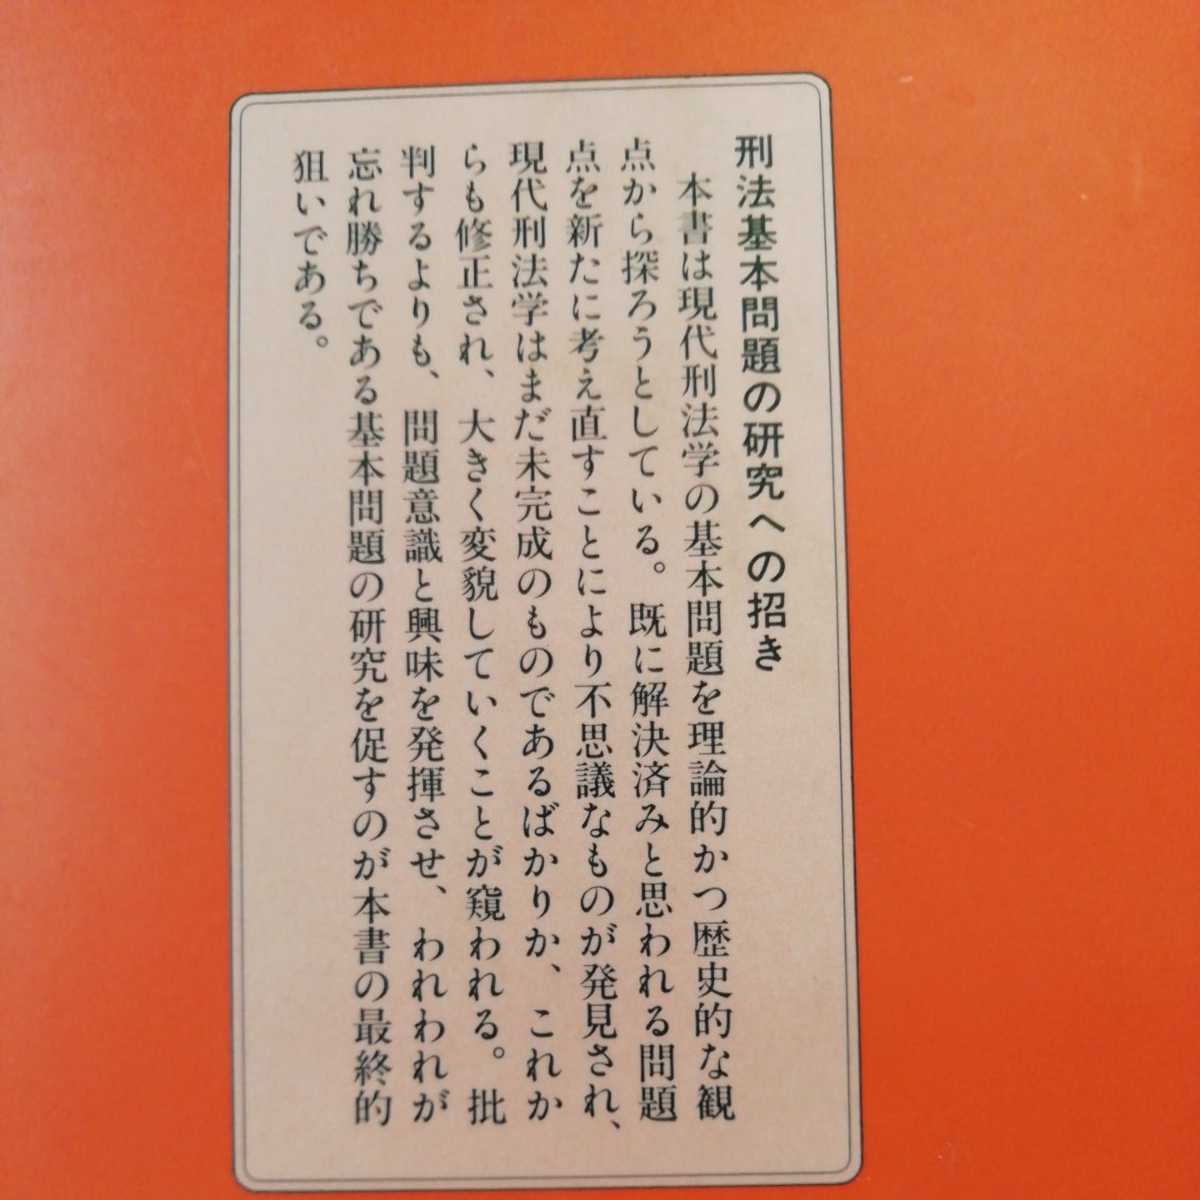 刑法基本問題の研究への招き
本書は現代刑法学の基本問題を理論的かつ歴史的な観
点から探ろうとしている。既に解決済みと思われる問題
点を新たに考え直すことにより不思議なものが発見され、
現代刑法学はまだ未完成のものであるばかりか、これか
らも修正され、大きく変貌していくことが窺われる。批
判するよりも、問題意識と興味を発揮させ、われわれが
忘れ勝ちである基本問題の研究を促すのが本書の最終的
狙いである。